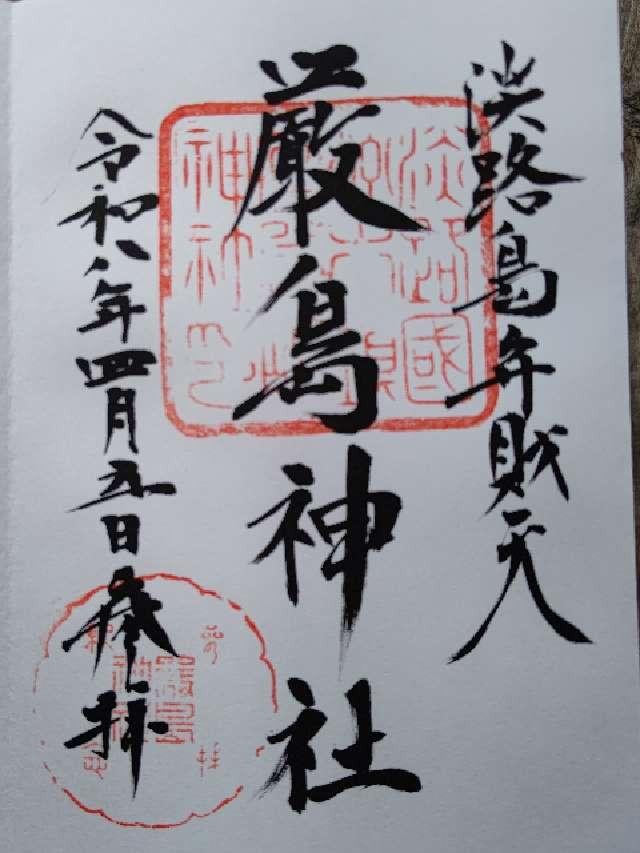 淡路島弁財天
厳島神社
令和八年四月五日参拝